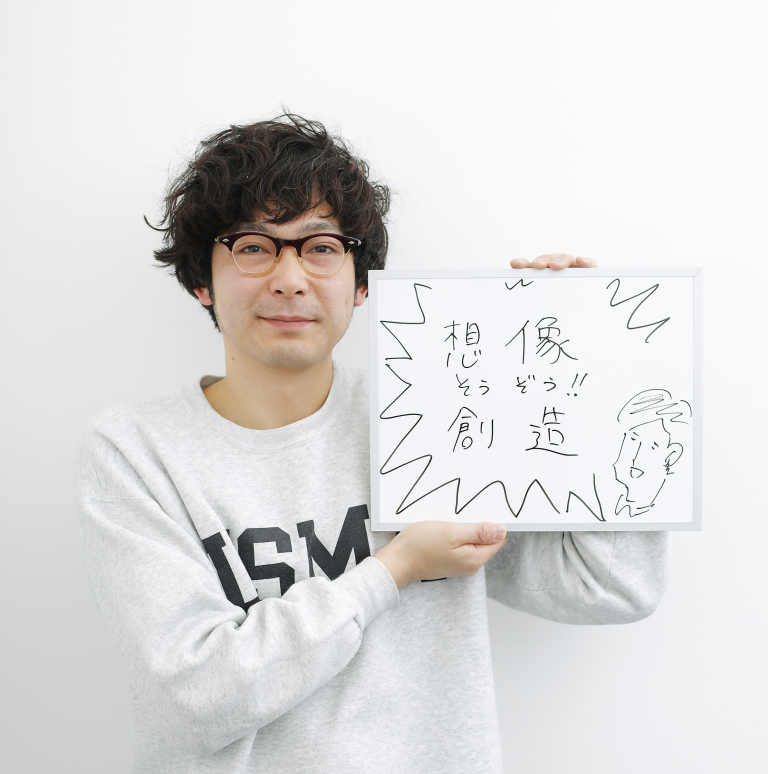 想像
そうぞう!!
創造
USM